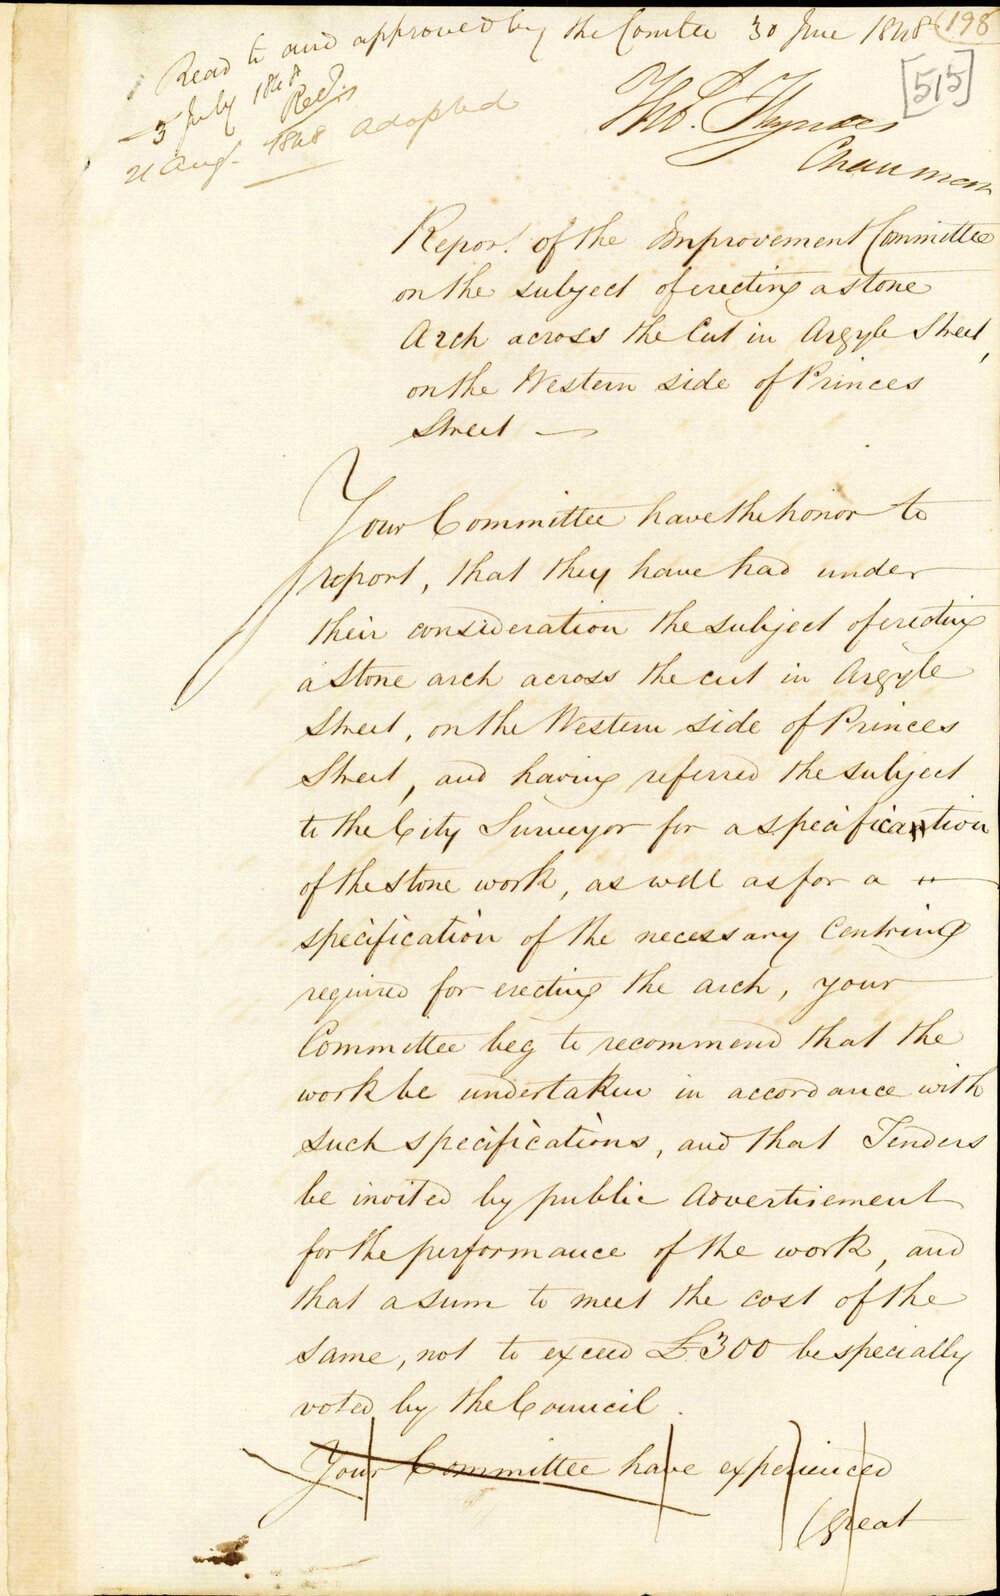 198
[515]
Read to and approved by the Comtee 30 June 1848
3 July 1848
Rec'd
21 Augt. 1848 adopted
Thos.
Chairman
Report of the Improvement Committee
on the subject of erecting a stone
Arch across the Cut in Argyle Street,
on the Western side of Princes
Street —
Your Committee have the honor to
report, that they have had under
their consideration the subject of erecting
a Stone arch across the cut in Argyle
Street, on the Western side of Princes
Street, and having referred the subject
to the City Surveyor for a specification
of the stone work, as well as for a
specification of the necessary Centring
required for erecting the arch, your
Committee beg to recommend that the
work be undertaken in accordance with
such specifications, and that Tenders
be invited by public Advertisement
for the performance of the work, and
that a sum to meet the cost of the
same, not to exceed £300 be specially
voted by the Council.
Your Committee have experienced
Great